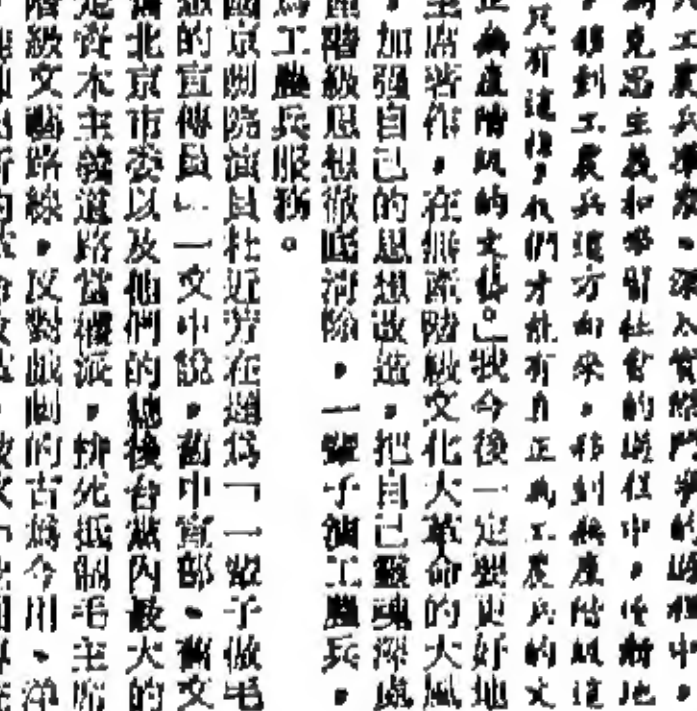 入工農兵群眾、深入實際鬥爭的過程中,
克思主義和學習社會的過程中,逐漸地
移到工農兵這方面來,移到無產階級這
只有這樣,我們才能有真正為工農兵的文
正無產階級的文藝。」我今後一定要更好地
主席著作,在無產階級文化大革命的大風
,加強自己的思想改造,把自己靈魂深處
產階級思想徹底清除,一輩子演工農兵,
為工農兵服務。
國京劇院演員杜近芳在題為「一輩子做毛
想的宣傳員」一文中說,舊中宣部、舊文
北京市委以及他們的總後台黨內最大的
走資本主義道路當權派,拚死抵制毛主席
階級文藝路線,反對戲劇的古為今用、洋